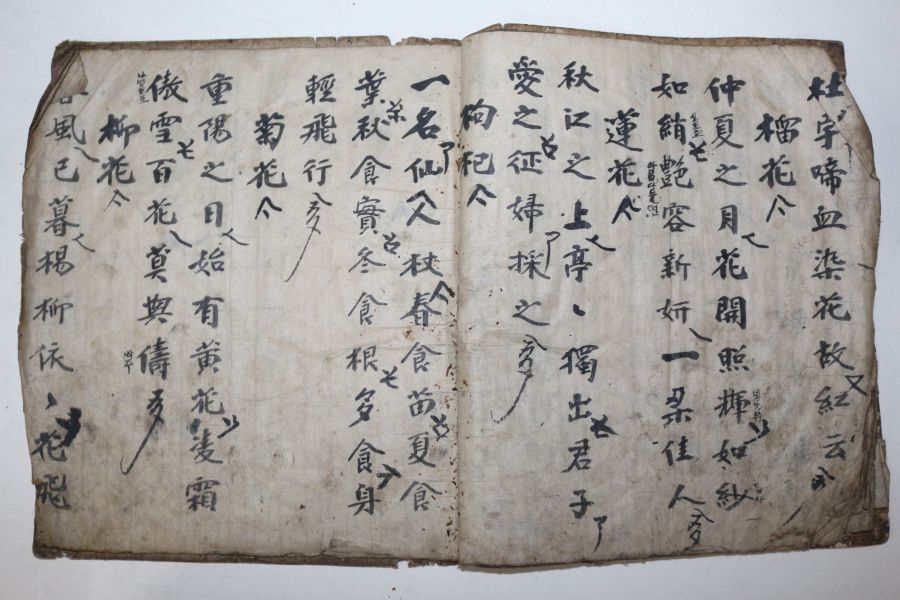 杜宇啼血染花故紅云
榴花
仲夏之月花開照輝如紗
如綃艶容新姸一朶佳人
蓮花
秋江之上亭亭獨出君子
愛之征婦採之
枸杞
一名仙人杖春食苗夏食
葉秋食實冬食根多食身
輕飛行
菊花
重陽之日始有黄花凌霜
傲雪百花莫與儔
柳花
風已暮楊柳依依花飛